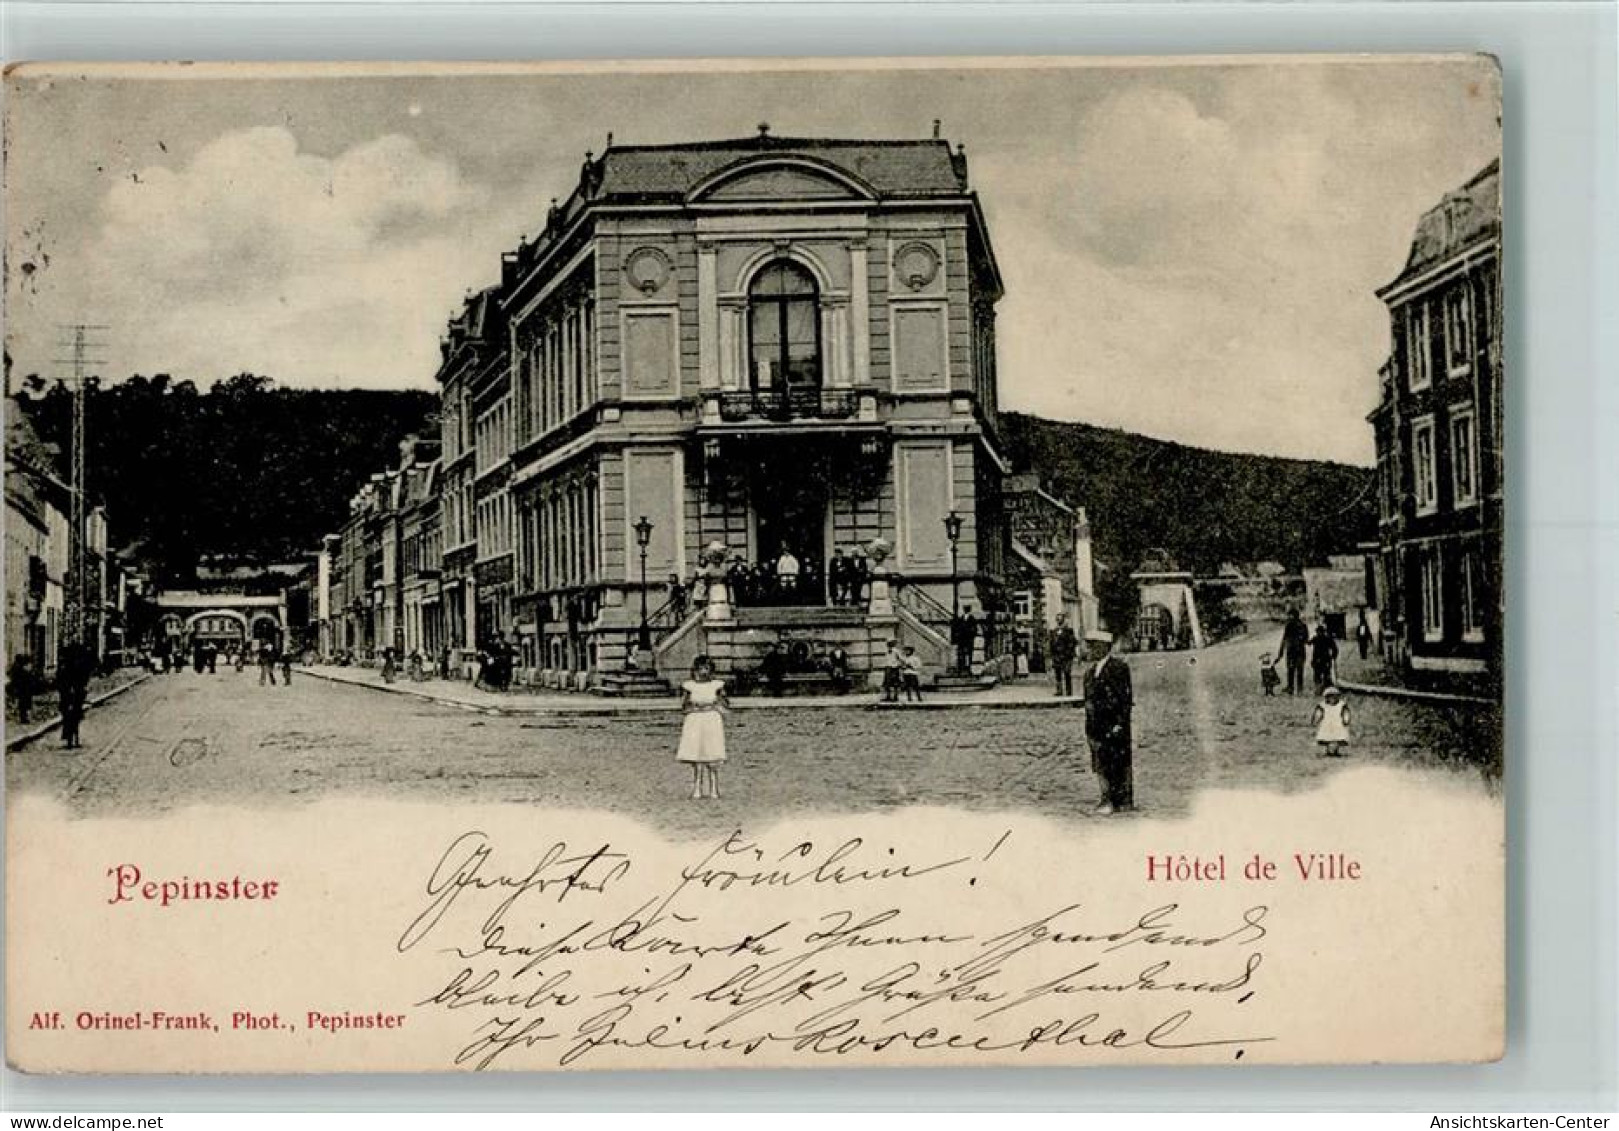 Pepinster
Hôtel de Ville
Geehrtes Fräulein!
Diese Karte Ihnen spendend
bleibe ich, best. Grüße sendend,
Ihr Julius Rosenthal.
Alf. Orinel-Frank, Phot., Pepinster
delcampe.net
Ansichtskarten-Center